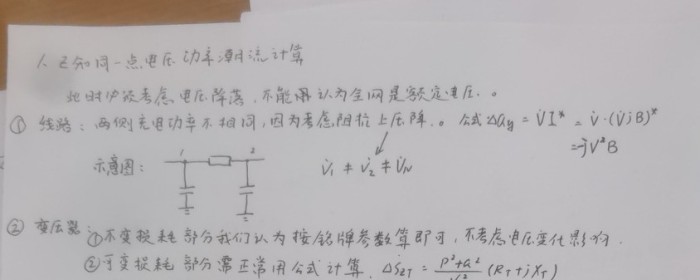 1. 已知同一点电压功率潮流计算
此时必须考虑电压降落,不能再认为全网是额定电压。
① 线路:两侧充电功率不相同,因为考虑阻抗上压降。公式 ΔQy = V̇I* = V̇·(V̇jB)*
= -jV²B
示意图: 1 2 V̇1 ≠ V̇2 ≠ V̇N
② 变压器:①不变损耗部分我们认为按铭牌参数算即可,不考虑电压变化影响.
②可变损耗部分需正常用公式计算. ΔSZT = P²+Q²/V² (RT+jXT)